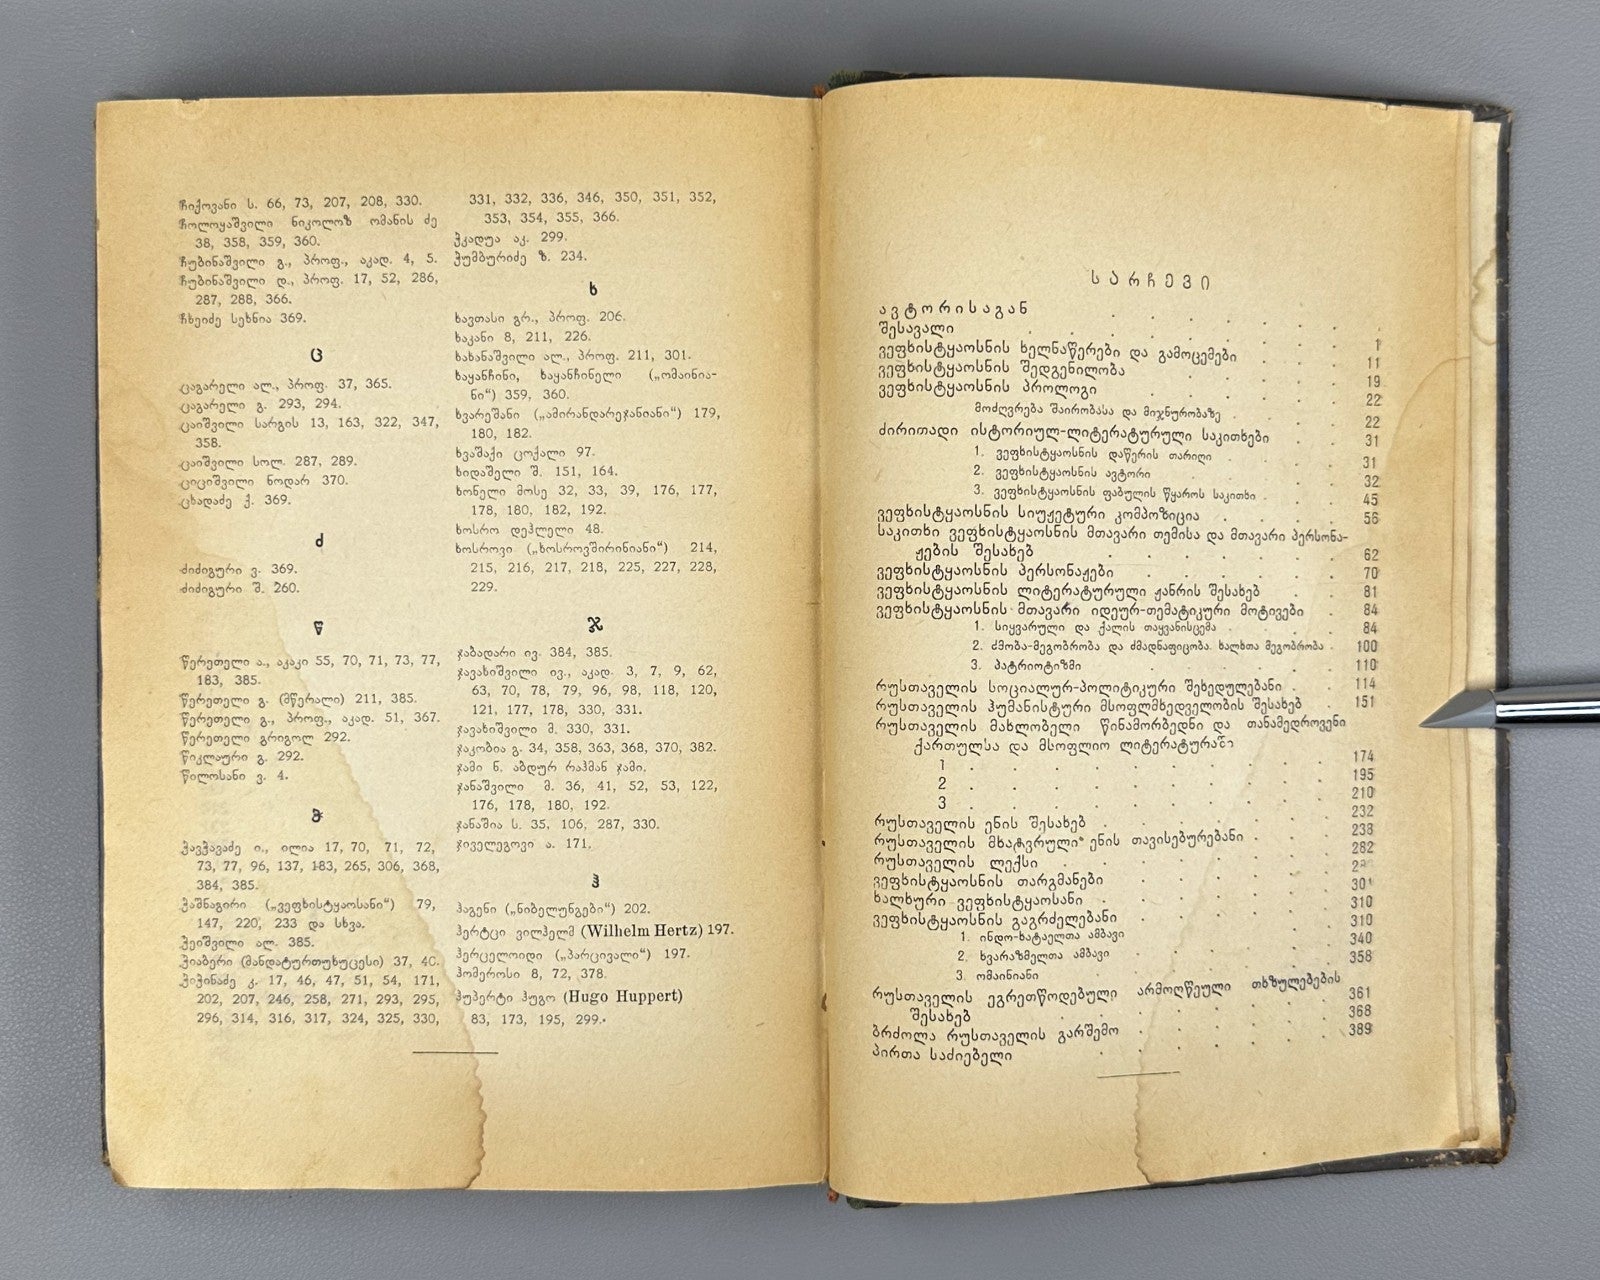 ჩიქოვანი ს. 66, 73, 207, 208, 330.
ჩოლოყაშვილი ნიკოლოზ ომანის ძე
38, 358, 359, 360.
ჩუბინაშვილი გ., პროფ., აკად. 4, 5.
ჩუბინაშვილი დ., პროფ. 17, 52, 286,
287, 288, 366.
ჩხეიძე სეხნია 369.
ც
ცაგარელი ალ., პროფ. 37, 365.
ცაგარელი გ. 293, 294.
ცაიშვილი სარგის 13, 163, 322, 347,
358.
ცაიშვილი სოლ. 287, 289.
ციციშვილი ნოდარ 370.
ცხადაძე ქ. 369.
ძ
ძიძიგური ვ. 369.
ძიძიგური შ. 260.
წ
წერეთელი ა., აკაკი 55, 70, 71, 73, 77,
183, 385.
წერეთელი გ. (მწერალი) 211, 385.
წერეთელი გ., პროფ., აკად. 51, 367.
წერეთელი გრიგოლ 292.
წიკლაური გ. 292.
წილოსანი ვ. 4.
ჭ
ჭავჭავაძე ი., ილია 17, 70, 71, 72,
73, 77, 96, 137, 183, 265, 306, 368,
384, 385.
ჭაშნაგირი („ვეფხისტყაოსანი“) 79,
147, 220, 233 და სხვა.
ჭეიშვილი ალ. 385.
ჭიაბერი (მანდატურთუხუცესი) 37, 40.
ჭიჭინაძე კ. 17, 46, 47, 51, 54, 171,
202, 207, 246, 258, 271, 293, 295,
296, 314, 316, 317, 324, 325, 330,
331, 332, 336, 346, 350, 351, 352,
353, 354, 355, 366.
ჭკადუა აკ. 299.
ჭუმბურიძე ზ. 234.
ხ
ხავთასი გრ., პროფ. 206.
ხაკანი 8, 211, 226.
ხახანაშვილი ალ., პროფ. 211, 301.
ხაყანჩინი, ხაყანჩინელი („ომაინია-
ნი“) 359, 360.
ხვარეშანი („ამირანდარეჯანიანი“) 179,
180, 182.
ხვაშაქი ცოქალი 97.
ხიდაშელი შ. 151, 164.
ხონელი მოსე 32, 33, 39, 176, 177,
178, 180, 182, 192.
ხოსრო დეჰლელი 48.
ხოსროვი („ხოსროვშირინიანი“) 214,
215, 216, 217, 218, 225, 227, 228,
229.
ჯ
ჯაბადარი ივ. 384, 385.
ჯავახიშვილი ივ., აკად. 3, 7, 9, 62,
63, 70, 78, 79, 96, 98, 118, 120,
121, 177, 178, 330, 331.
ჯავახიშვილი მ. 330, 331.
ჯაკობია გ. 34, 358, 363, 368, 370, 382.
ჯამი ნ. აბდურ რაჰმან ჯამი.
ჯანაშვილი მ. 36, 41, 52, 53, 122,
176, 178, 180, 192.
ჯანაშია ს. 35, 106, 287, 330.
ჯიველეგოვი ა. 171.
ჰ
ჰაგენი („ნიბელუნგები“) 202.
ჰერტცი ვილჰელმ (Wilhelm Hertz) 197.
ჰერცელოიდი („პარცივალი“) 197.
ჰომეროსი 8, 72, 378.
ჰუპერტი ჰუგო (Hugo Huppert)
83, 173, 195, 299.
სარჩევი
ავტორისაგან
შესავალი 1
ვეფხისტყაოსნის ხელნაწერები და გამოცემები 11
ვეფხისტყაოსნის შედგენილობა 19
ვეფხისტყაოსნის პროლოგი 22
მოძღვრება შაირობასა და მიჯნურობაზე 22
ძირითადი ისტორიულ-ლიტერატურული საკითხები 31
1. ვეფხისტყაოსნის დაწერის თარიღი 31
2. ვეფხისტყაოსნის ავტორი 32
3. ვეფხისტყაოსნის ფაბულის წყაროს საკითხი 45
ვეფხისტყაოსნის სიუჟეტური კომპოზიცია 56
საკითხი ვეფხისტყაოსნის მთავარი თემისა და მთავარი პერსონა-
ჟების შესახებ 62
ვეფხისტყაოსნის პერსონაჟები 70
ვეფხისტყაოსნის ლიტერატურული ჟანრის შესახებ 81
ვეფხისტყაოსნის მთავარი იდეურ-თემატიკური მოტივები 84
1. სიყვარული და ქალის თაყვანისცემა 84
2. ძმობა-მეგობრობა და ძმადნაფიცობა. ხალხთა მეგობრობა 100
3. პატრიოტიზმი 110
რუსთაველის სოციალურ-პოლიტიკური შეხედულებანი 114
რუსთაველის ჰუმანისტური მსოფლმხედველობის შესახებ 151
რუსთაველის მახლობელი წინამორბედნი და თანამედროვენი
ქართულსა და მსოფლიო ლიტერატურაში
1 174
2 195
3 210
რუსთაველის ენის შესახებ 232
რუსთაველის მხატვრული ენის თავისებურებანი 238
რუსთაველის ლექსი 282
ვეფხისტყაოსნის თარგმანები
ხალხური ვეფხისტყაოსანი 301
ვეფხისტყაოსნის გაგრძელებანი 310
1. ინდო-ხატაელთა ამბავი 310
2. ხვარაზმელთა ამბავი 340
3. ომაინიანი 358
რუსთაველის ეგრეთწოდებული არმოღწეული თხზულებების
შესახებ 361
ბრძოლა რუსთაველის გარშემო 368
პირთა საძიებელი 389